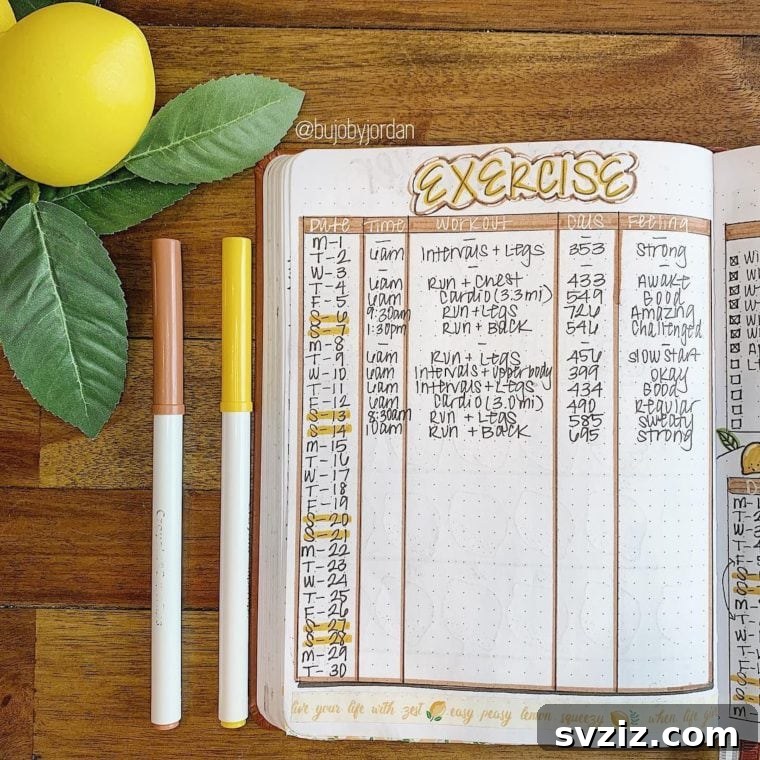 @bujobyjordan
EXERCISE
Date Time Workout Cals Feeling
M-1 - - - -
T-2 6am Intervals + Legs 353 Strong
W-3 - - - -
T-4 6am Run + Chest 433 Awake
F-5 6am Cardio (3.3mi) 549 Good
S-6 9:30am Run + Legs 726 Amazing
S-7 1:30pm Run + Back 546 Challenged
M-8 - - - -
T-9 6am Run + Legs 456 Slow start
W-10 6am Intervals + Upperbody 399 Okay
T-11 6am Intervals + Legs 434 Good
F-12 6am Cardio (3.0mi) 490 Regular
S-13 8:30am Run + Legs 585 Sweaty
S-14 10am Run + Back 695 Strong
M-15
T-16
W-17
T-18
F-19
S-20
S-21
M-22
T-23
W-24
T-25
F-26
S-27
S-28
M-29
T-30
live your life with zest easy peasy lemon squeezy when life
svziz.com